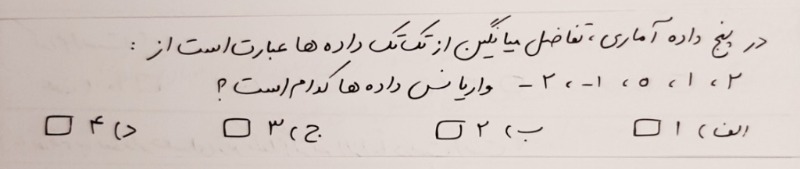 در پنج داده آماری، تفاضل میانگین از تک تک داده ها عبارت است از :
۲ ، ۱ ، ۰ ، ۱- ، ۲- واریانس داده ها کدام است ؟
الف) ۱ ب) ۲ ج) ۳ د) ۴